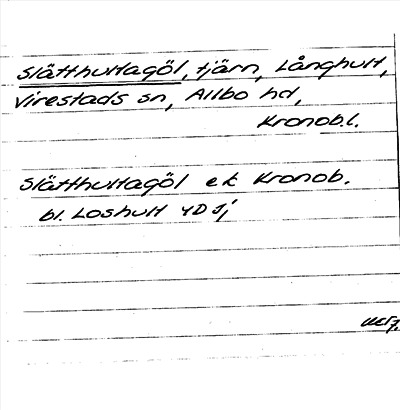 Slätthultagöl, tjärn, Långhult,
Virestads sn, Allbo hd,
Kronob.l.
Slätthultagöl ek Kronob.
bl. Loshult 4D 1j